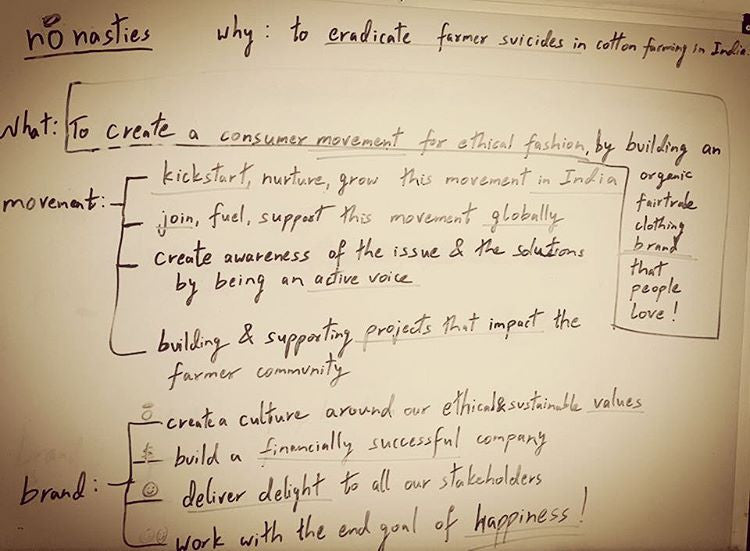 no nasties why: to eradicate farmer suicides in cotton farming in India.
What: To create a consumer movement for ethical fashion, by building an
organic
fairtrade
clothing
brand
that
people
love!
movement:
kickstart, nurture, grow this movement in India
join, fuel, support this movement globally
create awareness of the issue & the solutions
by being an active voice
building & supporting projects that impact the
farmer community
brand:
create a culture around our ethical & sustainable values
$ build a financially successful company
deliver delight to all our stakeholders
work with the end goal of happiness!